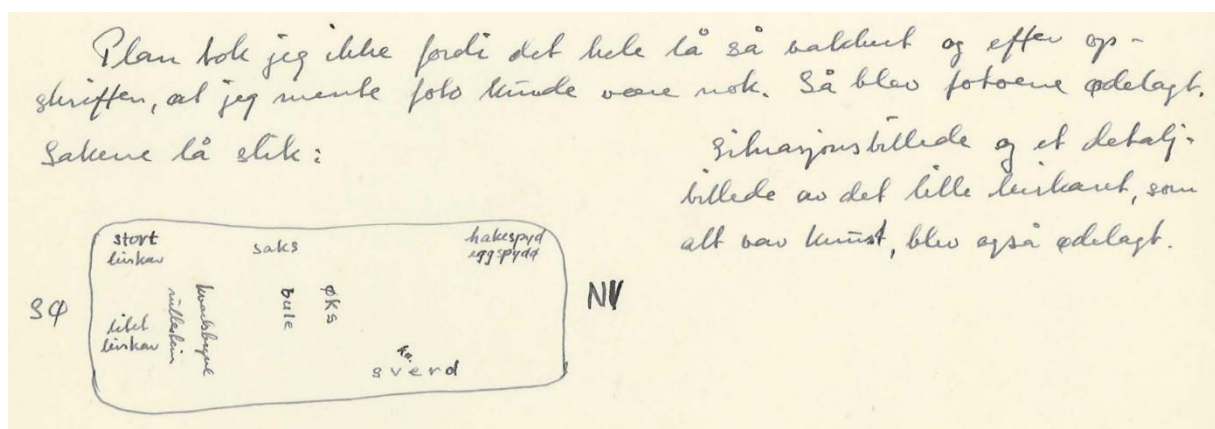 Plan tok jeg ikke fordi det hele lå så vakkert og efter op-
skriften, at jeg mente foto kunde være nok. Så blev fotoene ødelagt.
Sakene lå slik:
Situasjonsbillede og et detalj-
billede av det lille leirkaret, som
alt var knust, blev også ødelagt.
stort
leirkar
saks
hakespyd
eggspyd
SØ
litet
leirkar
rullestein
bule
ØKS
sverd
NV